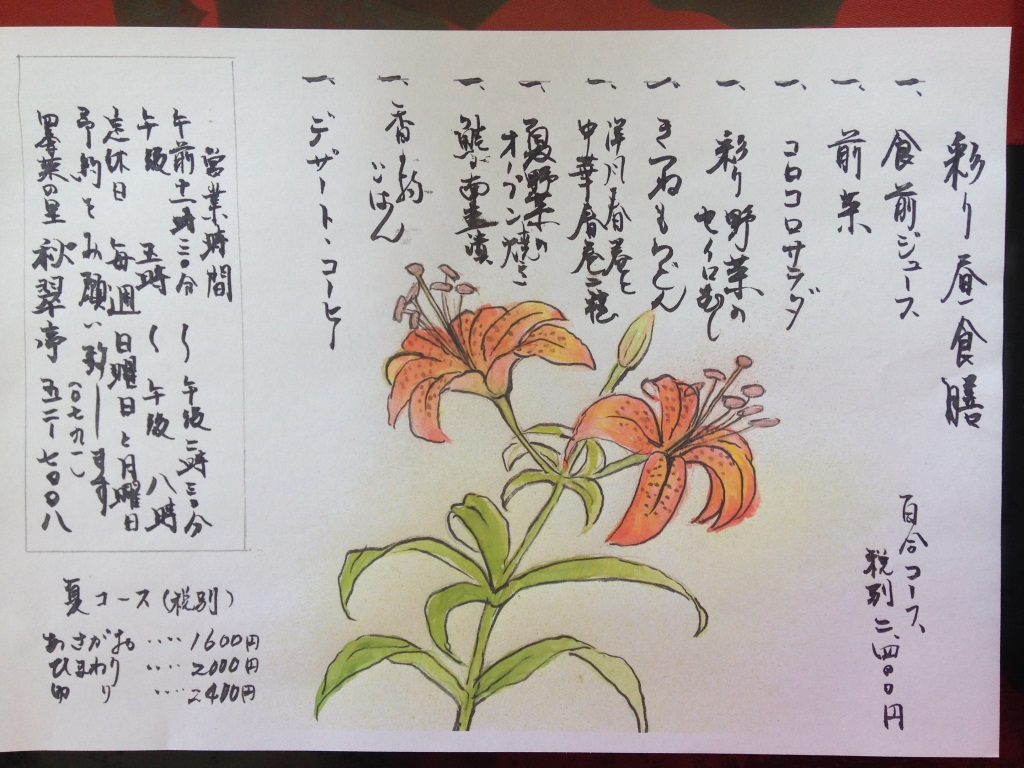 彩り昼食膳
百合コース
税別二、四〇〇円
一、食前ジュース
一、前菜
一、コロコロサラダ
一、彩り野菜の
セイロむし
一、きつねもりうどん
一、洋風春巻と
中華春巻二種
一、夏野菜の
オーブン焼と
鯵の南蛮漬
一、香の物
ごはん
一、デザート・コーヒー
営業時間
午前十一時三〇分 〜 午後二時三〇分
午後 五時 〜 午後 八時
定休日 毎週 日曜日と月曜日
予約をお願い致します
(〇七九一)
四季菜の里 秋翠亭 五二ー七〇〇八
夏コース(税別)
あさがお ‥‥ 1600円
ひまわり ‥‥ 2000円
ゆり ‥‥ 2400円